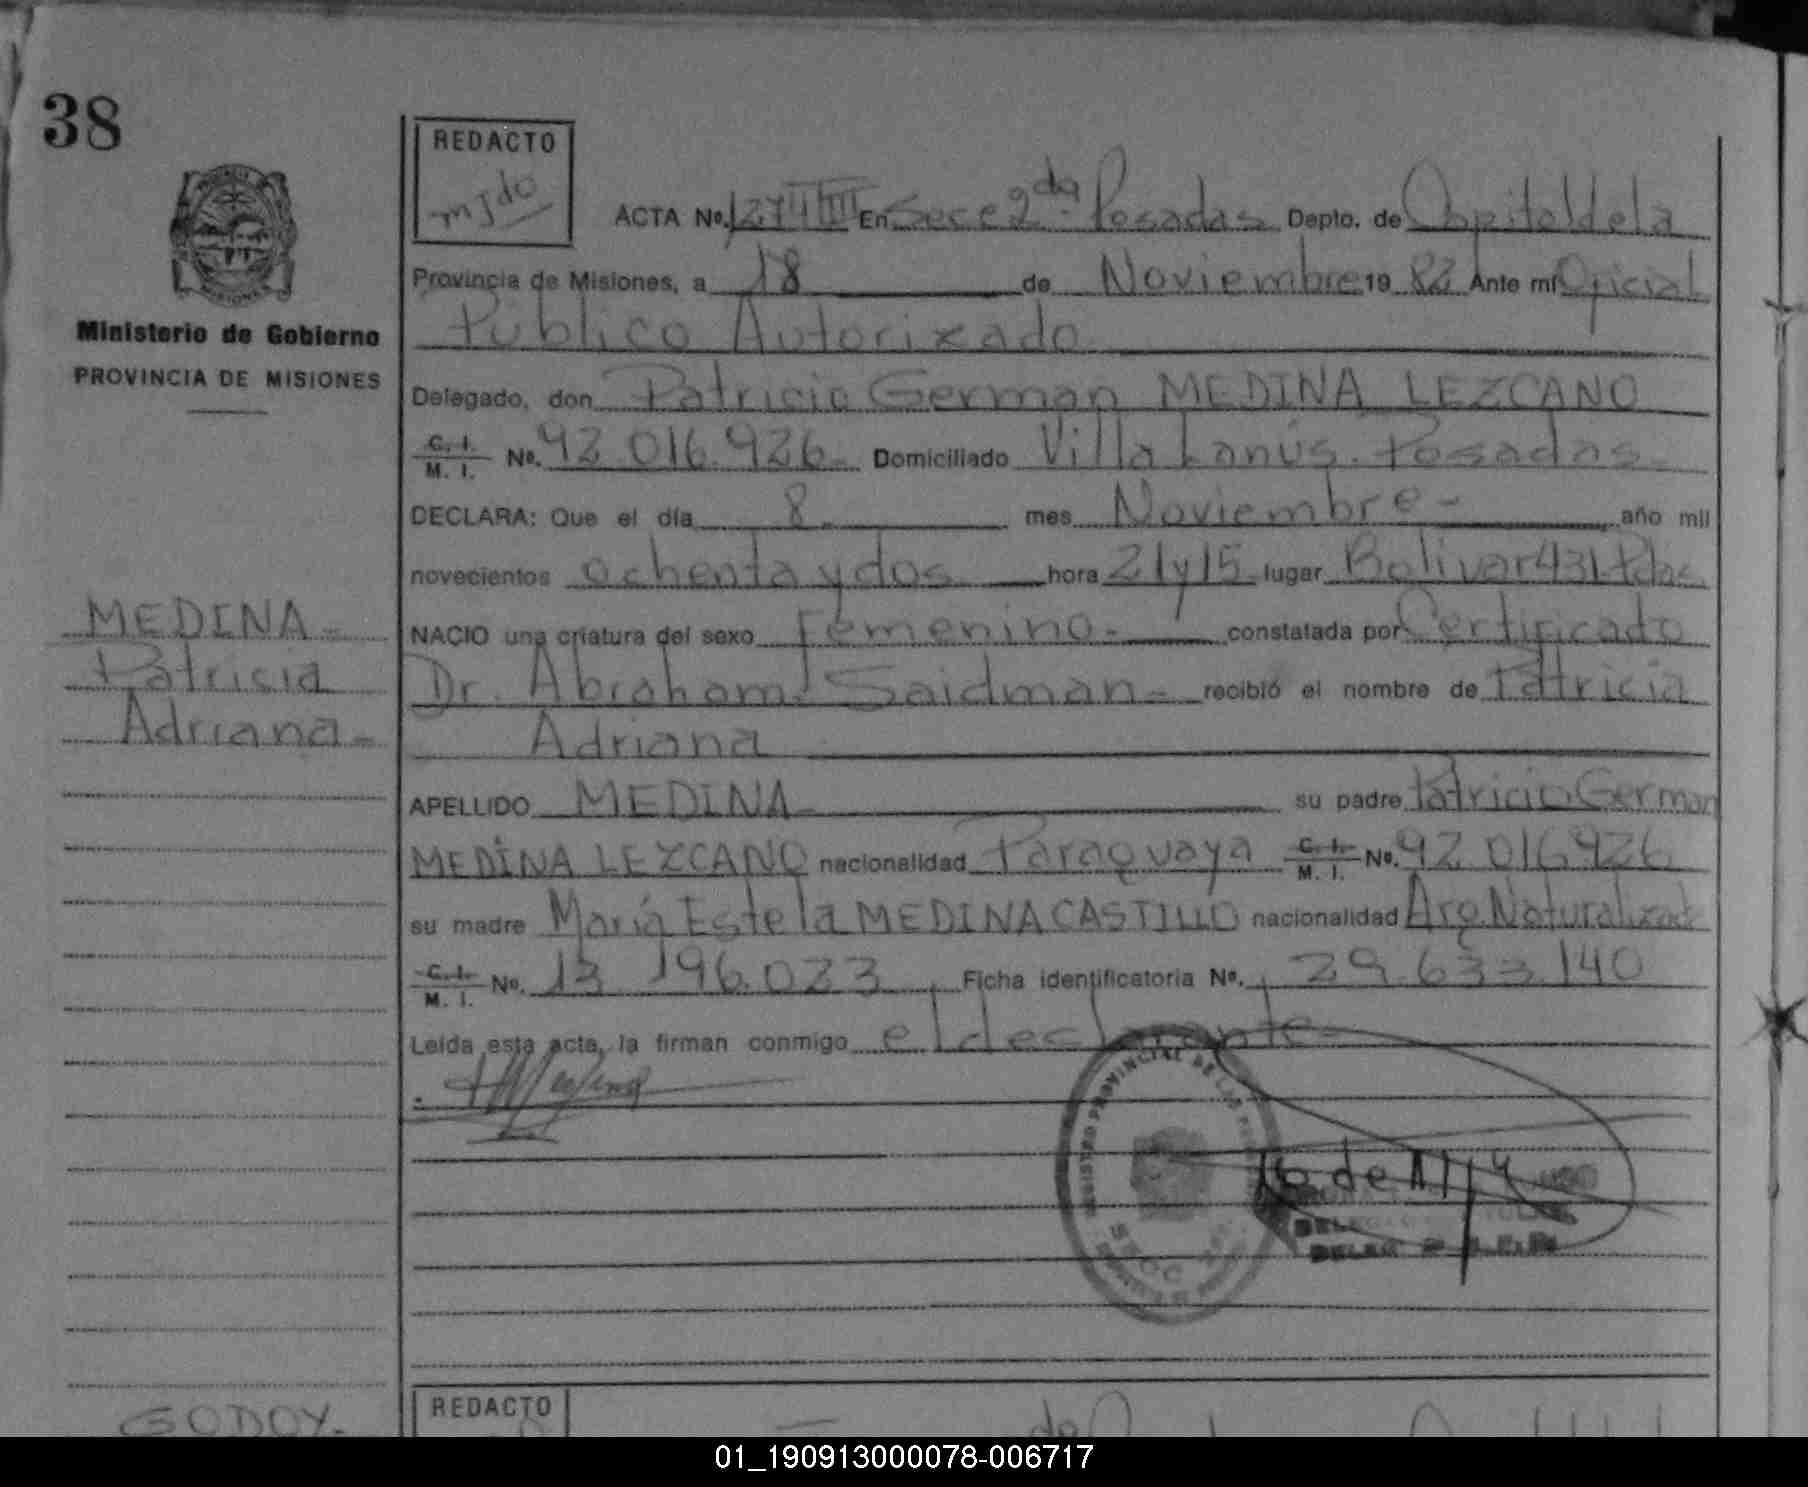 38
REDACTO
mjdo
PROVINCIA
MISIONES
Ministerio de Gobierno
PROVINCIA DE MISIONES
ACTA No. En Secc 2da. Posadas Depto. de Capital de la
Provincia de Misiones, a 18 de Noviembre 19 82 Ante mí Oficial
Público Autorizado
Delegado, don Patricio German MEDINA LEZCANO
C. I. M. I. No. 92.016.926- Domiciliado Villa Lanús. Posadas-
DECLARA: Que el día 8 mes Noviembre- año mil
novecientos ochenta y dos hora 21 y 15 lugar Bolivar 431-Pdas
NACIO una criatura del sexo Femenino- constatada por Certificado
Dr. Abraham Saidman- recibió el nombre de Patricia
Adriana
APELLIDO MEDINA su padre Patricio German
MEDINA LEZCANO nacionalidad Paraguaya C. I. M. I. No. 92.016926
su madre María Estela MEDINA CASTILLO nacionalidad Arg. Naturalizada
C. I. M. I. No. 13.196.023 Ficha identificatoria No. 29.633.140
Leída esta acta, la firman conmigo el declarante-
MEDINA-
Patricia
Adriana-
REGISTRO PROVINCIAL DE LAS
GODOY.
REDACTO
01_190913000078-006717